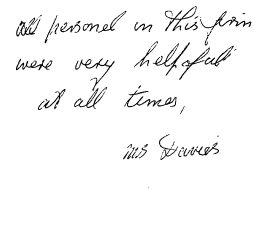 all personel in this firm
were very helpful
at all times,
Mrs Davies